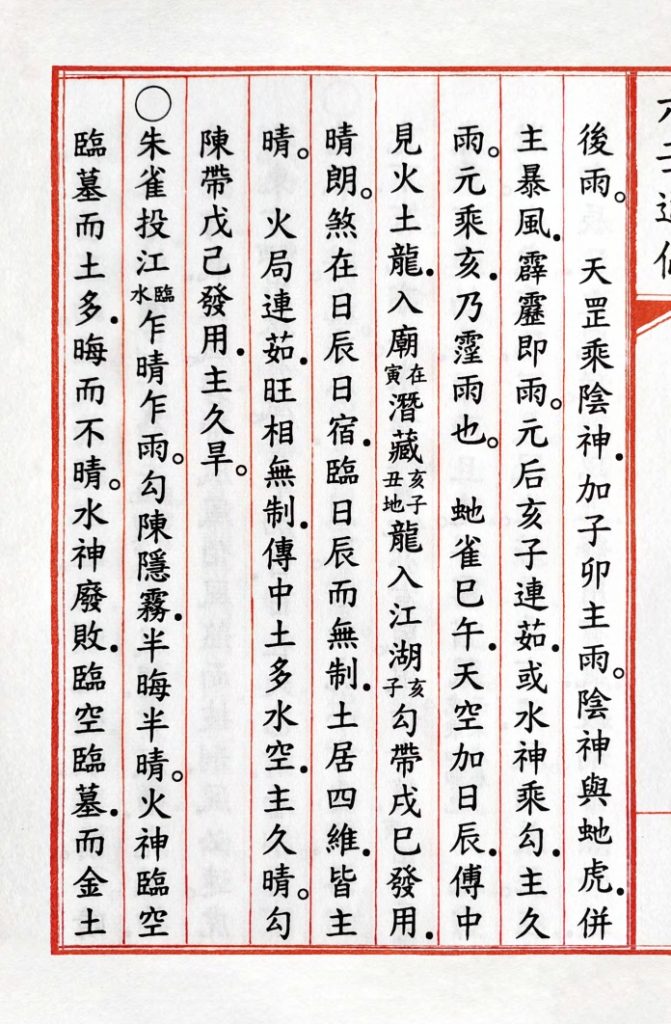 後雨。　天罡乘陰神．加子卯主雨。陰神與虵虎．併
主暴風．霹靂即雨。元后亥子連茹．或水神乘勾．主久
雨。元乘亥．乃霪雨也。　虵雀巳午．天空加日辰．傅中
見火土龍．入廟在寅潛藏亥子丑地龍入江湖亥子勾帶戌巳發用．
晴朗。煞在日辰日宿．臨日辰而無制．土居四維．皆主
晴。　火局連茹．旺相無制．傳中土多水空．主久晴。勾
陳帶戊己發用．主久旱。
○朱雀投江臨水乍晴乍雨。勾陳隱霧．半晦半晴。火神臨空
臨墓而土多．晦而不晴。水神廢敗．臨空臨墓．而金土